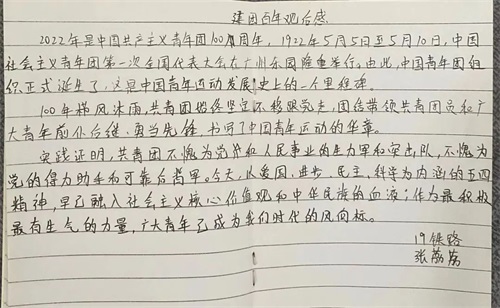 建团百年观后感
2022年是中国共产主义青年团100周年，1922年5月5日至5月10日，中国
社会主义青年团第一次全国代表大会在广州东园隆重举行。由此，中国青年团组
织正式诞生了，这是中国青年运动发展史上的一个里程碑。
100年栉风沐雨，共青团始终坚定不移跟党走，团结带领共青团员和广
大青年前仆后继、勇当先锋，书写了中国青年运动的华章。
实践证明，共青团不愧为党和人民事业的生力军和突击队，不愧为
党的得力助手和可靠后备军。今天，以爱国、进步、民主、科学为内涵的五四
精神，早已融入社会主义核心价值观和中华民族的血液；作为最积极
最有生气的力量，广大青年已成为我们时代的风向标。
19铁路
张荔荔